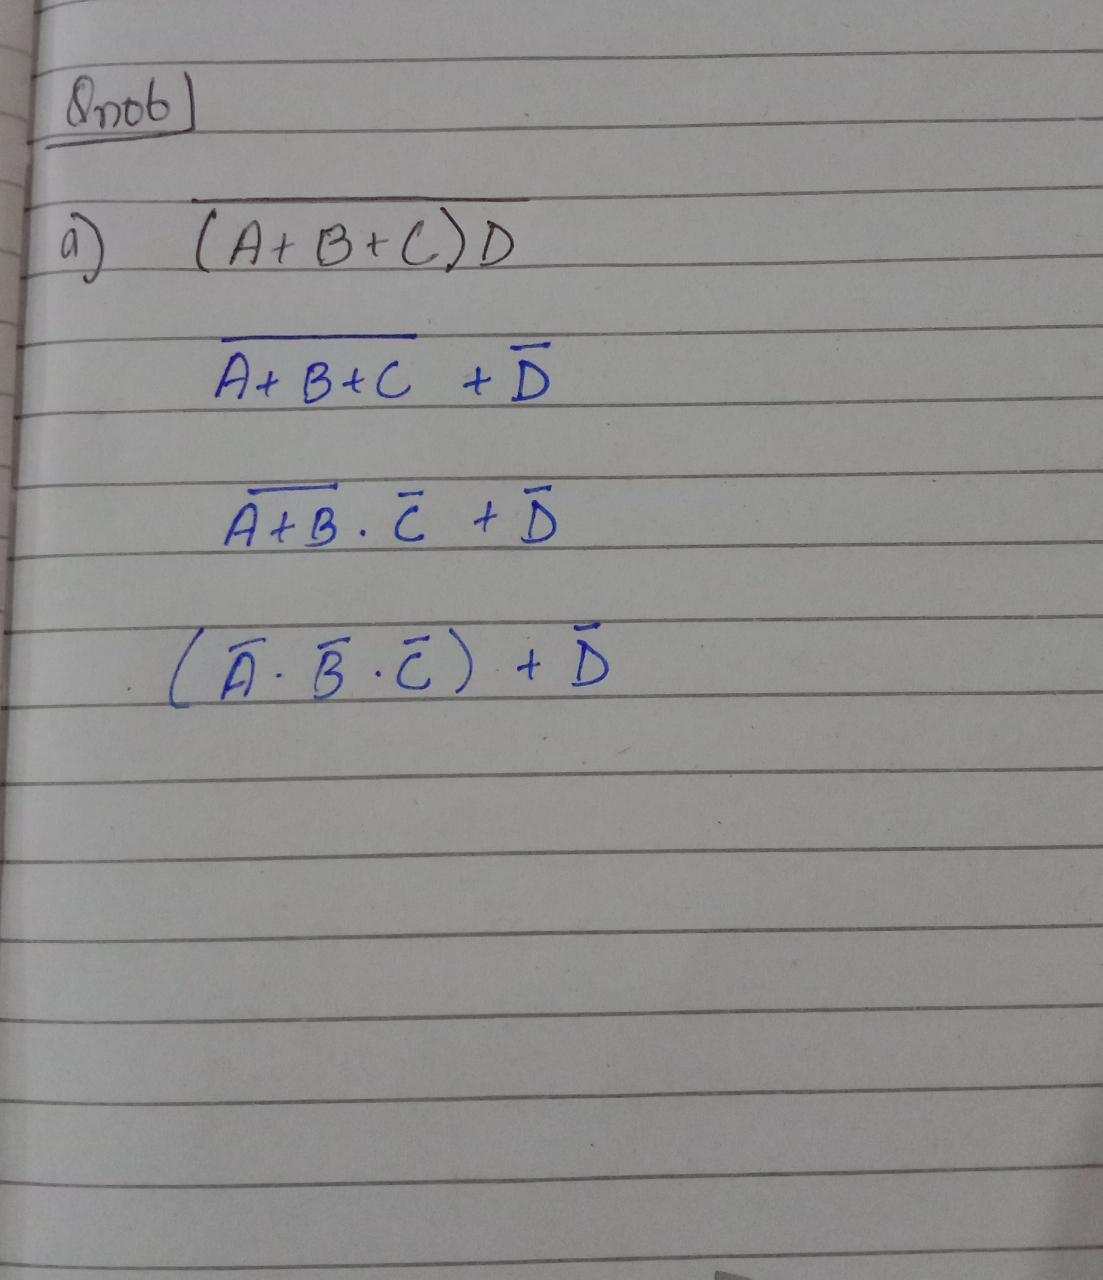 Qno6]
a) \overline{(A+B+C)D}
\overline{A+B+C} + \overline{D}
\overline{A+B} . \overline{C} + \overline{D}
(\overline{A} . \overline{B} . \overline{C}) + \overline{D}